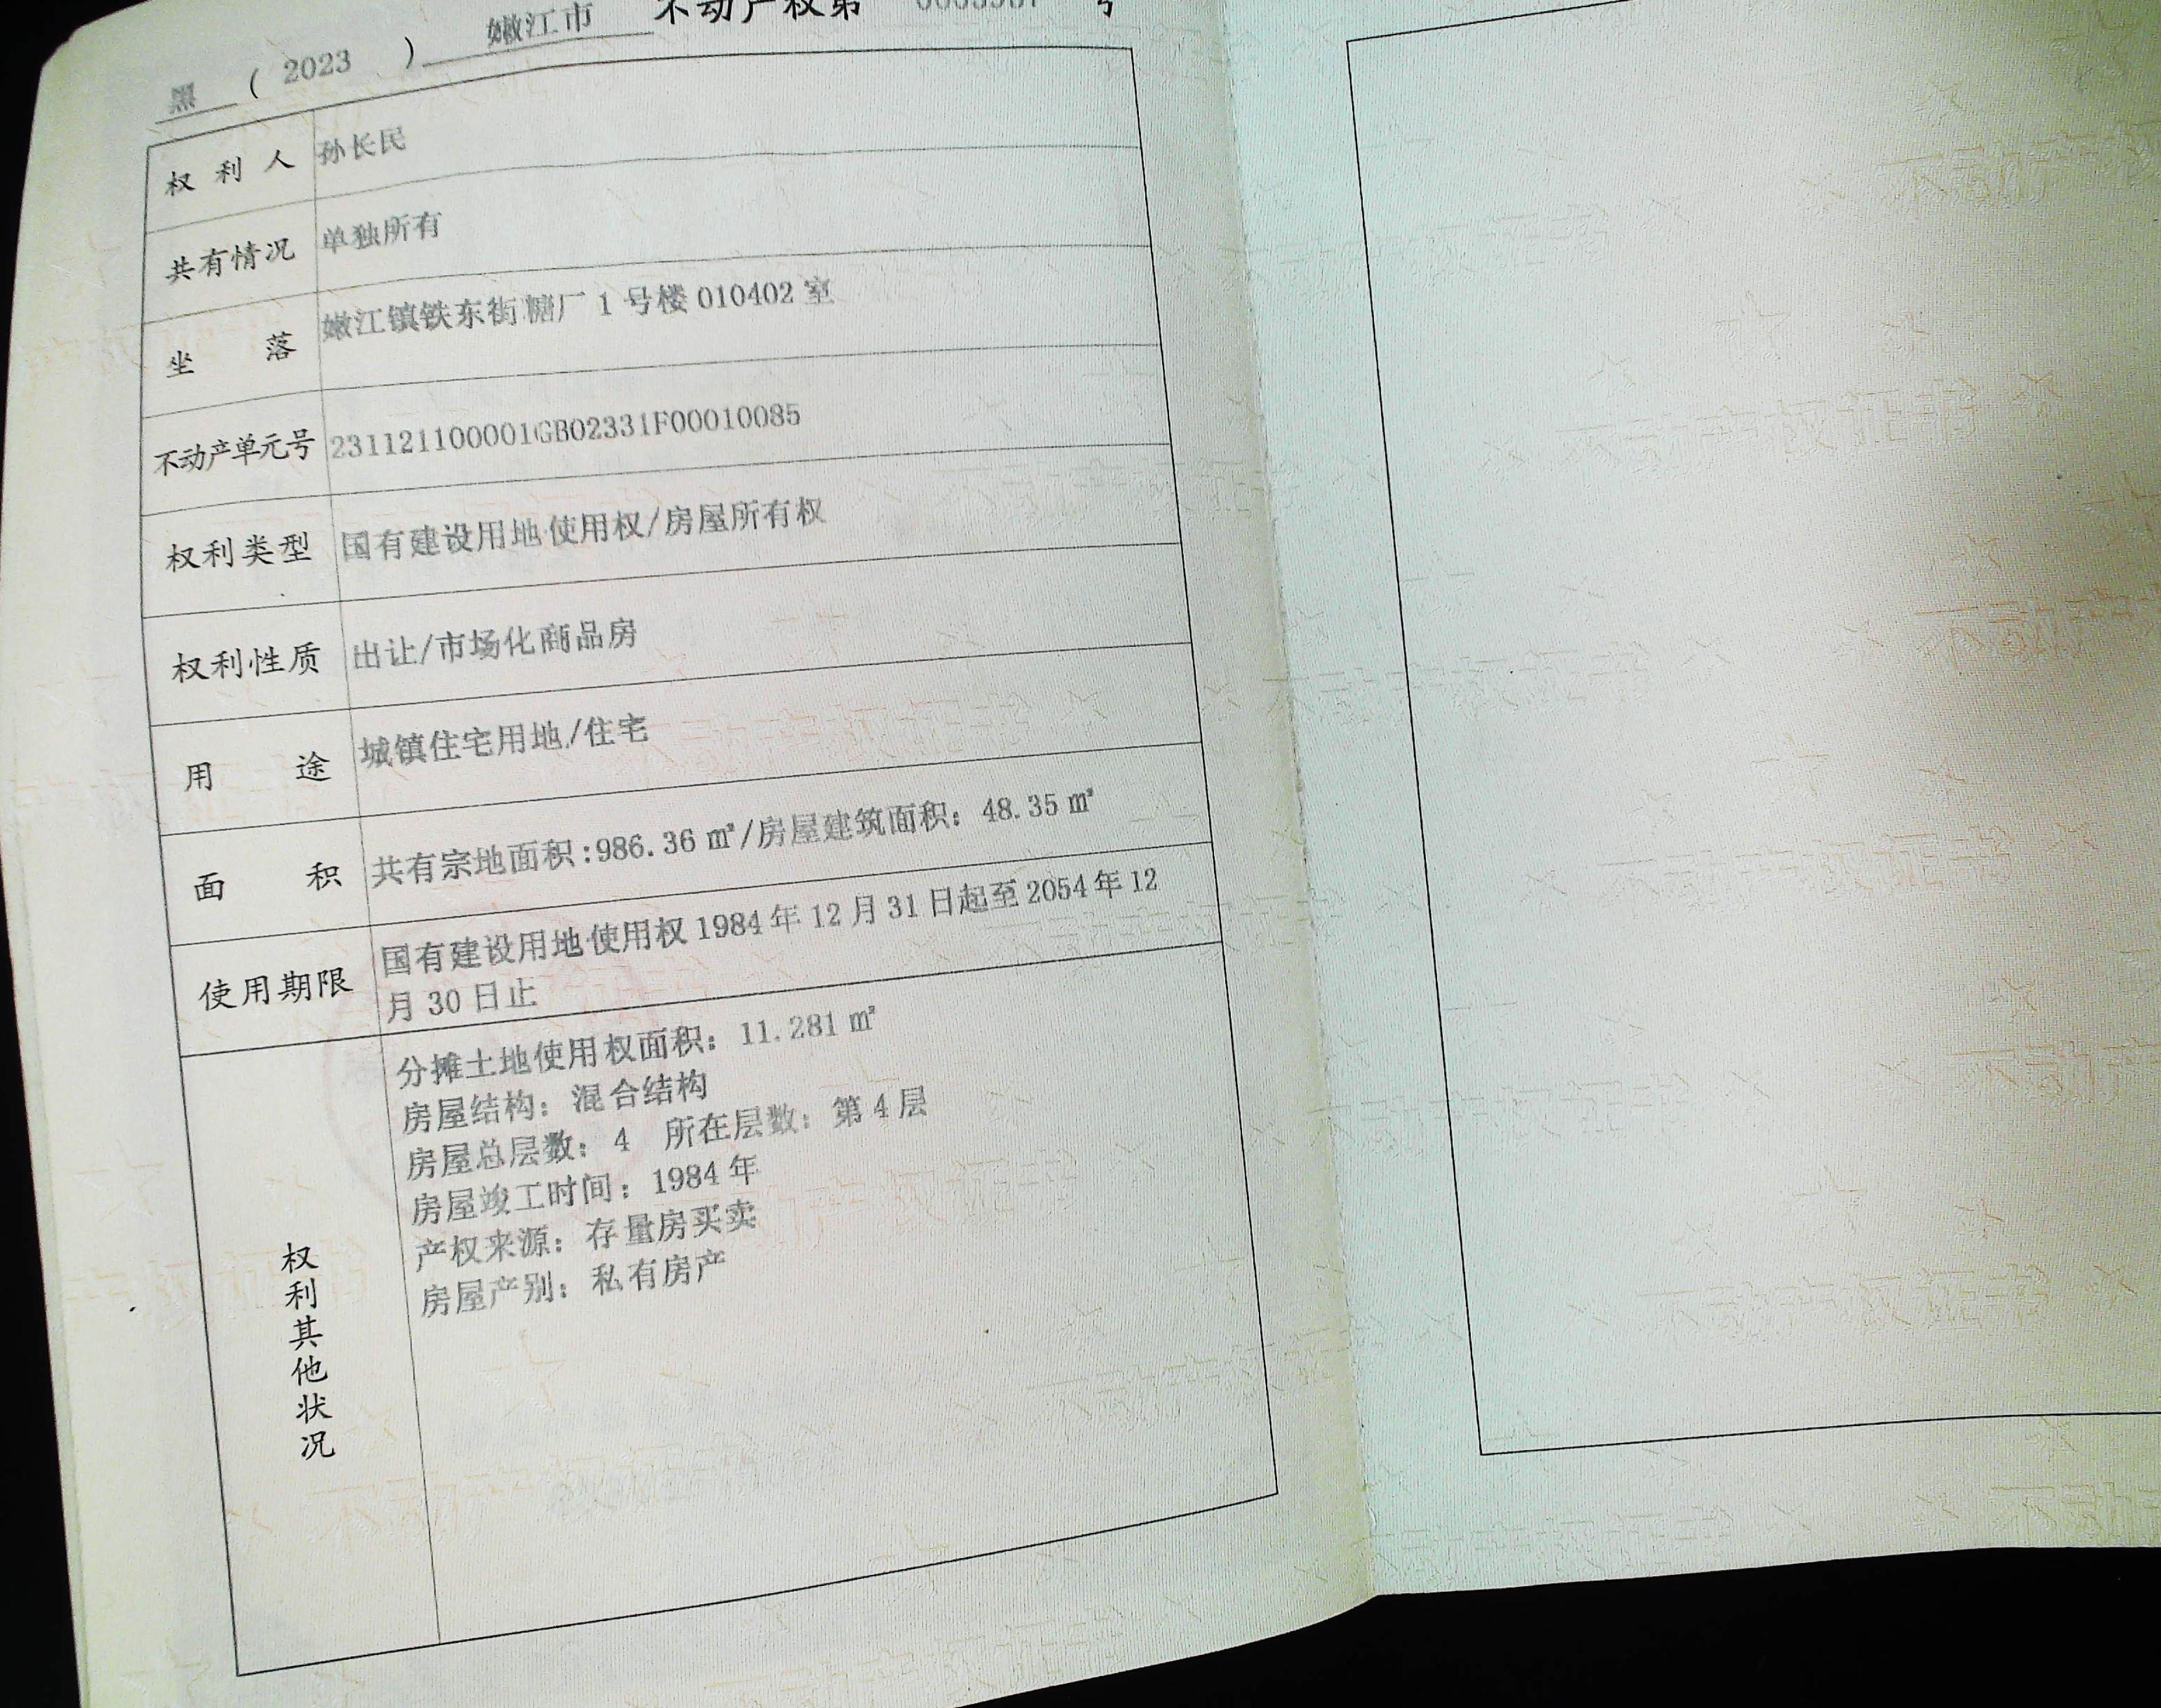 黑 ( 2023 ) 嫩江市 不动产权第 号
权利人 孙长民
共有情况 单独所有
坐落 嫩江镇铁东街糖厂 1 号楼 010402 室
不动产单元号 231121100001GB02331F00010085
权利类型 国有建设用地使用权/房屋所有权
权利性质 出让/市场化商品房
用途 城镇住宅用地/住宅
面积 共有宗地面积:986.36 ㎡/房屋建筑面积: 48.35 ㎡
使用期限 国有建设用地使用权 1984 年 12 月 31 日起至 2054 年 12
月 30 日止
权利其他状况
分摊土地使用权面积: 11.281 ㎡
房屋结构: 混合结构
房屋总层数: 4 所在层数: 第 4 层
房屋竣工时间: 1984 年
产权来源: 存量房买卖
房屋产别: 私有房产